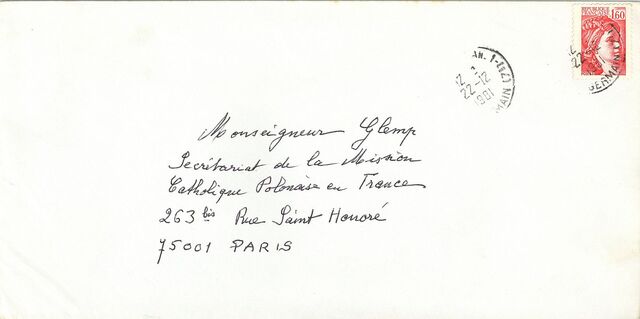 RÉPUBLIQUE
FRANÇAISE
1,60
22-12
1981
Monseigneur Glemp
Secrétariat de la Mission
Catholique Polonaise en France
263 bis Rue Saint Honoré
75001 PARIS